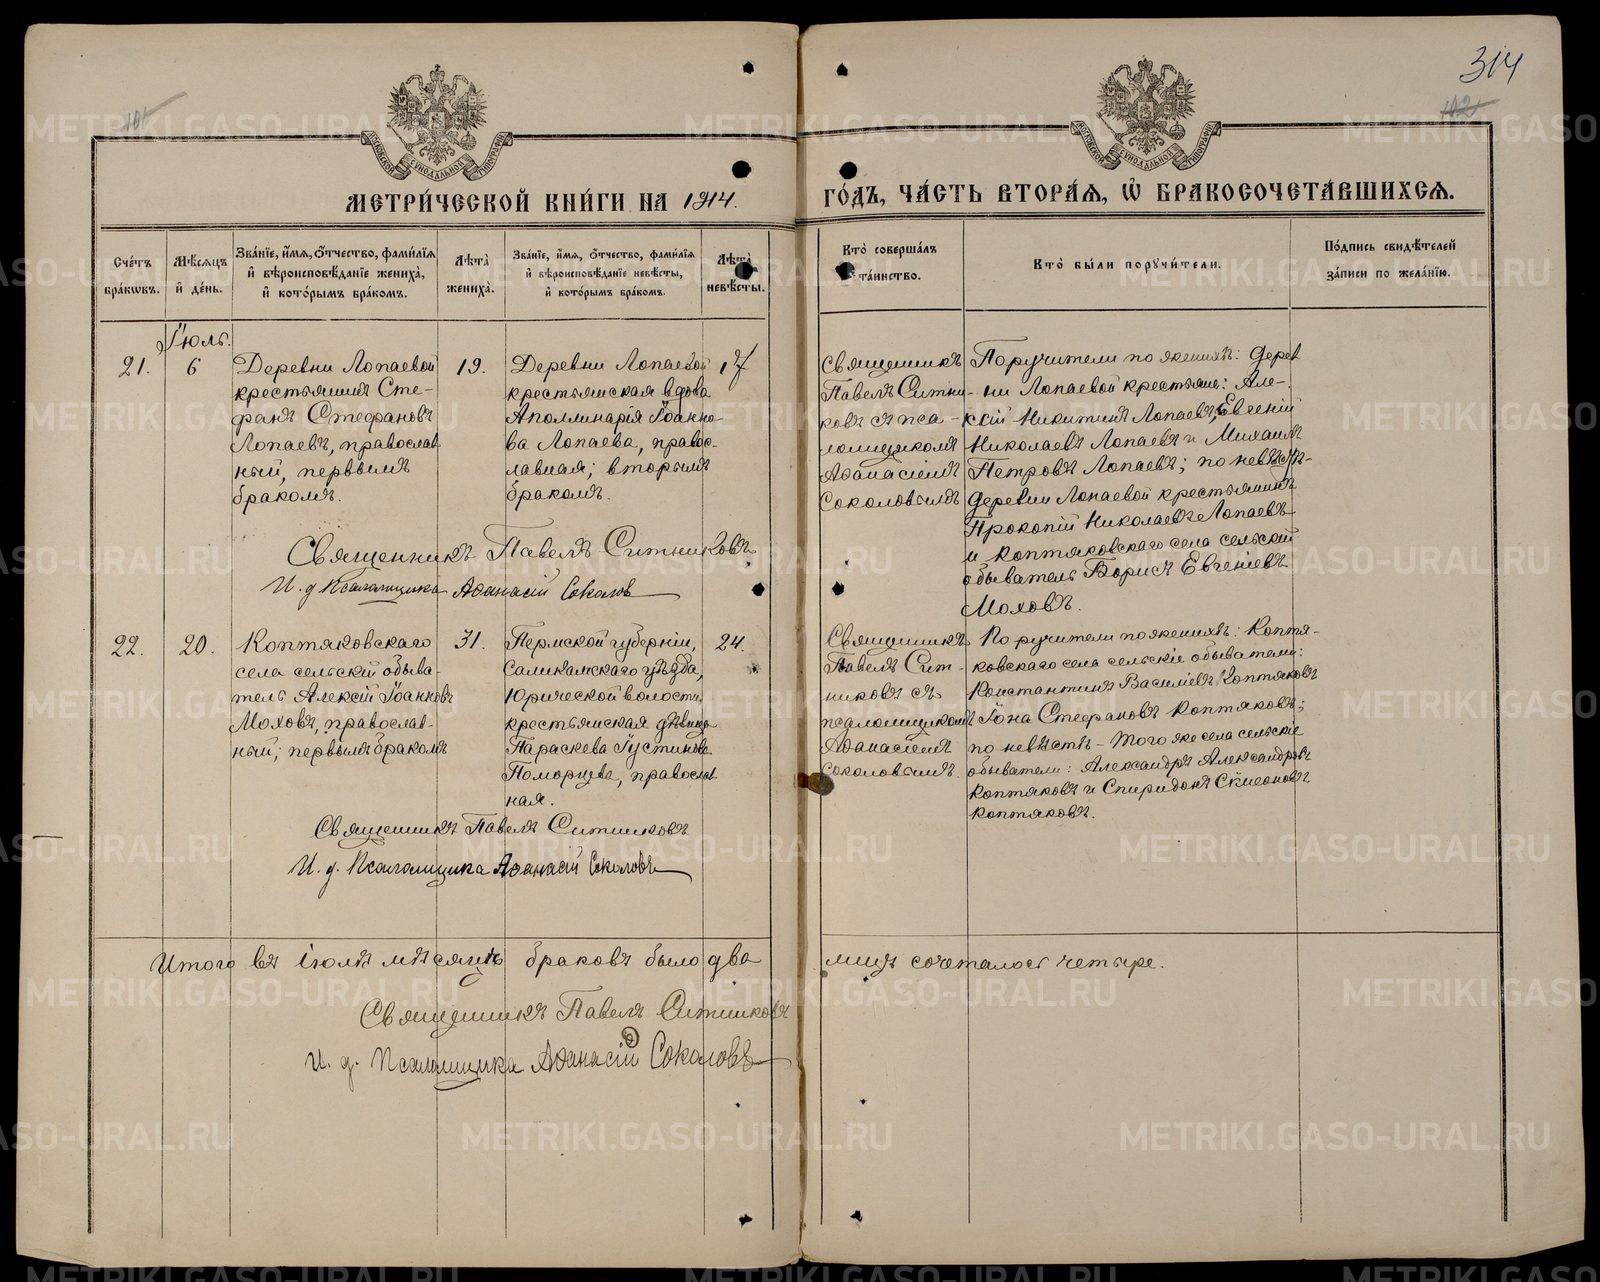 314
101
102
МОСКОВСКОЙ СѴНОДАЛЬНОЙ ТИПОГРАФІИ
МОСКОВСКОЙ СѴНОДАЛЬНОЙ ТИПОГРАФІИ
МЕТРИ́ЧЕСКОЙ КНИ́ГИ НА 1914.
ГО́ДЪ, ЧА́СТЬ ВТОРА́Я, Ѡ҆ БРАКОСОЧЕТА́ВШИХСЯ.
Сче́тъ бра́кѡвъ.
Мѣ́сяцъ и҆ де́нь.
Зва́нїе, и҆́мя, ѻ҆́тчество, фами́лїя и҆ вѣроисповѣ́данїе жениха̀, и҆ кото́рымъ бра́комъ.
Лѣ́та̀ жениха̀.
Зва́нїе, и҆́мя, ѻ҆́тчество, фами́лїя и҆ вѣроисповѣ́данїе невѣ́сты, и҆ кото́рымъ бра́комъ.
Лѣ́та̀ невѣ́сты.
Кто̀ соверша́лъ та́инство.
Кто̀ бы́ли порꙋчи́тели.
По́дпись свидѣ́телей за́писи по жела́нїю.
Іюль.
21.
6
Деревни Лопаевой
крестьянинъ Сте-
фанъ Стефановъ
Лопаевъ, православ
ный, первымъ
бракомъ.
19.
Деревни Лопаевой
крестьянская вдова
Аполлинарія Іоанно-
ва Лопаева, право-
славная; вторымъ
бракомъ.
17
Священникъ
Павелъ Ситни-
ковъ съ пса-
ломщикомъ
Аѳанасіемъ
Соколовымъ
Поручители по женихѣ: дерев
ни Лопаевой крестьяне: Але-
ксій Никитинъ Лопаевъ, Евгеній
Николаевъ Лопаевъ и Михаилъ
Петровъ Лопаевъ; по невѣстѣ-
деревни Лопаевой крестьянинъ
Прокопій Николаевъ Лопаевъ
и Коптяковскаго села сельскій
обыватель Борисъ Евгеніевъ
Моховъ.
Священникъ Павелъ Ситниковъ
И. д. Псаломщика Аѳанасій Соколовъ
22.
20.
Коптяковскаго
села сельскій обыва-
тель Алексій Іоанновъ
Моховъ, православ-
ный; первымъ бракомъ
31.
Пермской губерніи,
Саликамскаго уѣзда,
Юрической волости,
крестьянская дѣвица
Параскева Іустинова
Поморцева, православ
ная.
24.
Священникъ
Павелъ Сит-
никовъ съ
псаломщикомъ
Аѳанасіемъ
Соколовымъ.
Поручители по женихѣ: Коптя-
ковскаго села сельскіе обыватели:
Константинъ Василіевъ Коптяковъ
Іона Стефановъ Коптяковъ;
по невѣстѣ - того же села сельскіе
обыватели: Александръ Александровъ
Коптяковъ и Спиридонъ Симеоновъ
Коптяковъ.
Священникъ Павелъ Ситниковъ
И. д. Псаломщика Аѳанасій Соколовъ
Итого въ іюлѣ мѣсяцѣ браковъ было два
лицъ сочеталось четыре.
Священникъ Павелъ Ситниковъ
И. д. Псаломщика Аѳанасій Соколовъ
METRIKI.GASO-URAL.RU